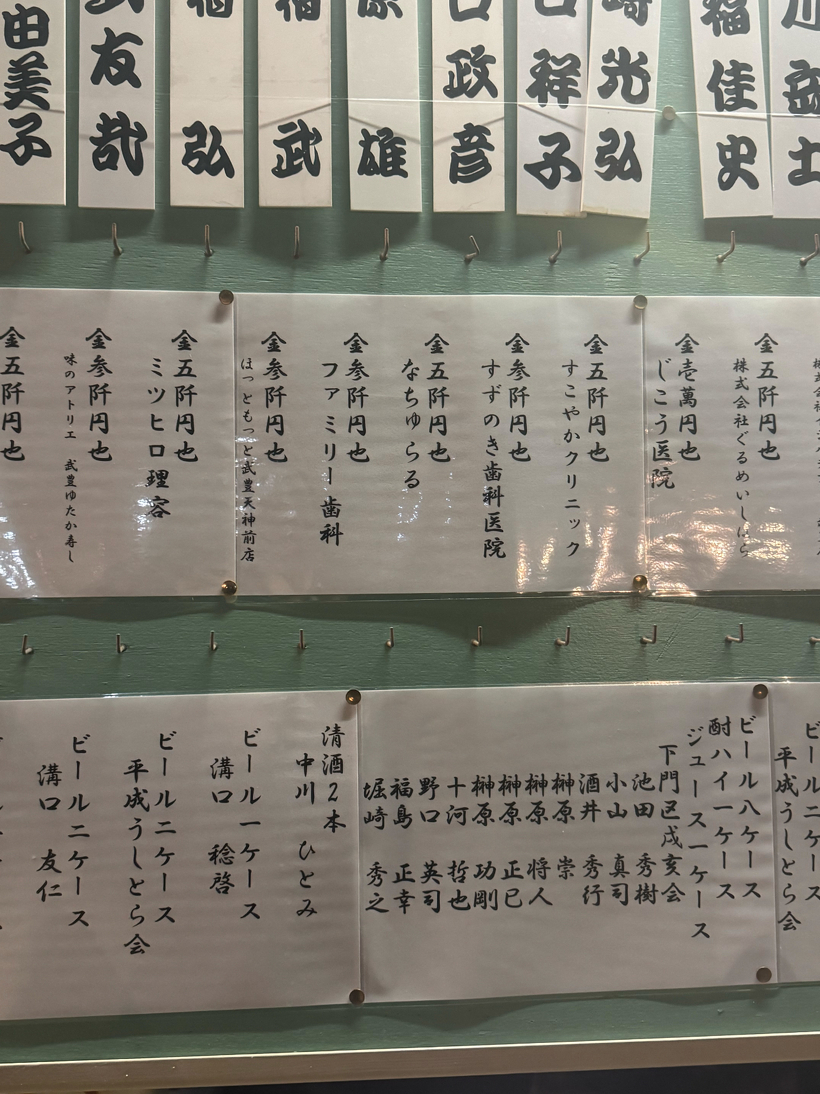 土
福佳史
光弘
祥子
政彦
雄
武
弘
友哉
由美子
金五阡円也
株式会社ぐるめいしはら
金壱萬円也
じこう医院
金五阡円也
すこやかクリニック
金参阡円也
すずのき歯科医院
金五阡円也
なちゅらる
金参阡円也
ファミリー歯科
金参阡円也
ほっともっと武豊天神前店
金五阡円也
ミツヒロ理容
金参阡円也
味のアトリエ 武豊ゆたか寿し
金五阡円也
平成うしとら会
ビール八ケース
酎ハイ一ケース
ジュース一ケース
下門区戌亥会
池田 秀樹
小山 真司
酒井 秀行
榊原 崇
榊原 将人
榊原 正巳
榊原 功剛
十河 哲也
野口 英司
福島 正幸
堀崎 秀之
清酒2本
中川 ひとみ
ビール一ケース
溝口 稔啓
ビール二ケース
平成うしとら会
ビール二ケース
溝口 友仁